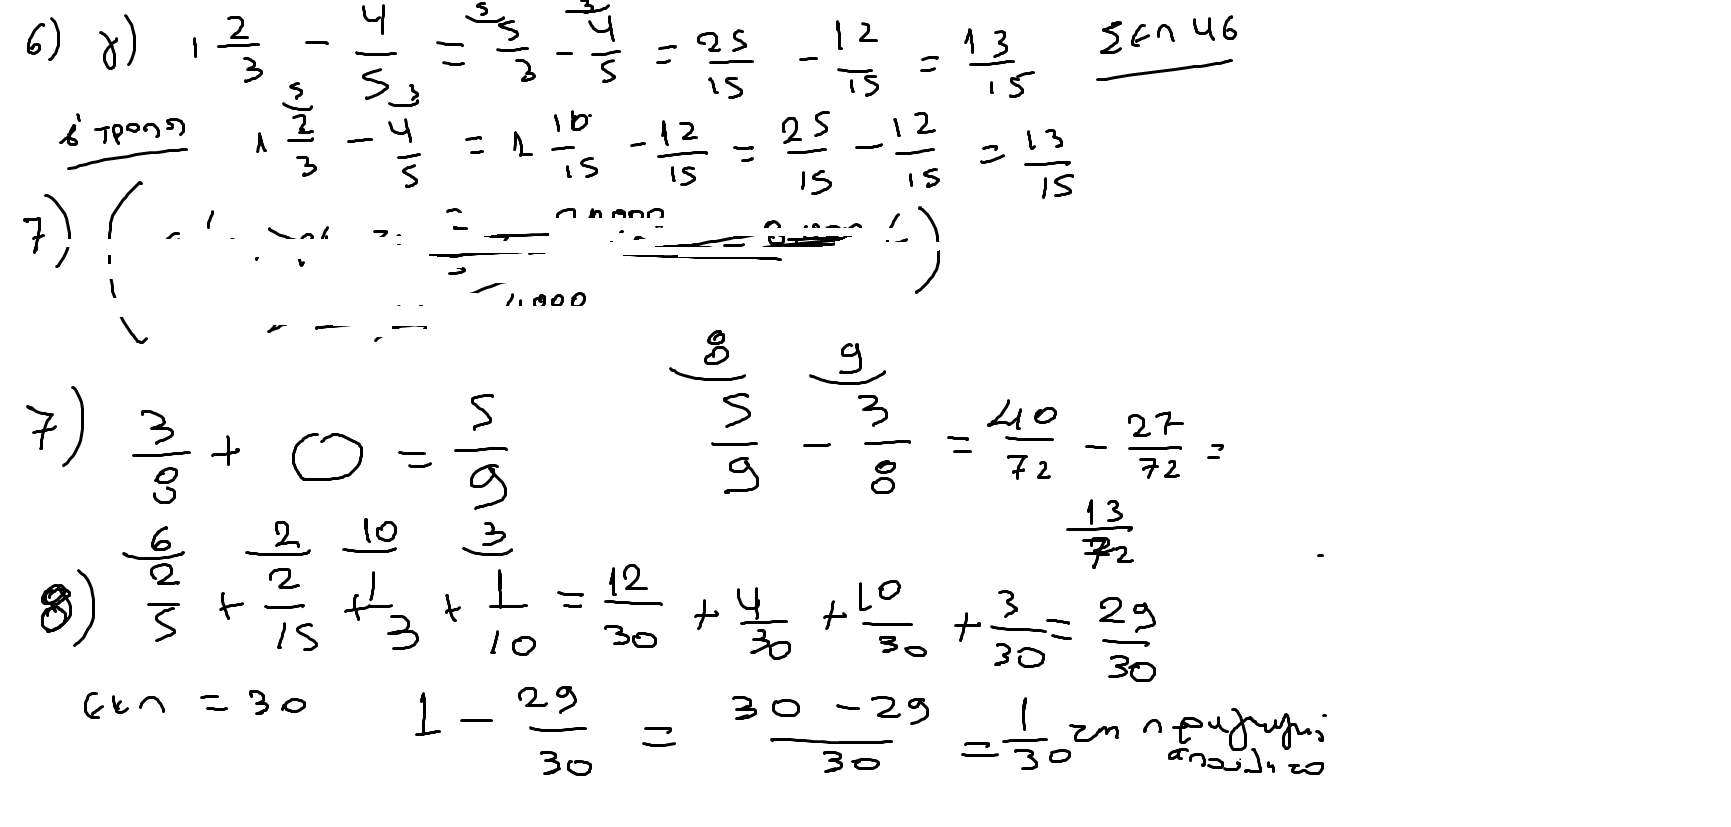 6) γ) 1 2/3 - 4/5 = 5/3 - 4/5 = 25/15 - 12/15 = 13/15 Σελ 46
β' τροπο 1 2/3 - 4/5 = 1 10/15 - 12/15 = 25/15 - 12/15 = 13/15
7)
7) 3/8 + 0 = 5/9 5/9 - 3/8 = 40/72 - 27/72 =
13/72
8) 2/5 + 2/15 + 1/3 + 1/10 = 12/30 + 4/30 + 10/30 + 3/30 = 29/30
εκπ = 30 1 - 29/30 = 30 - 29/30 = 1/30